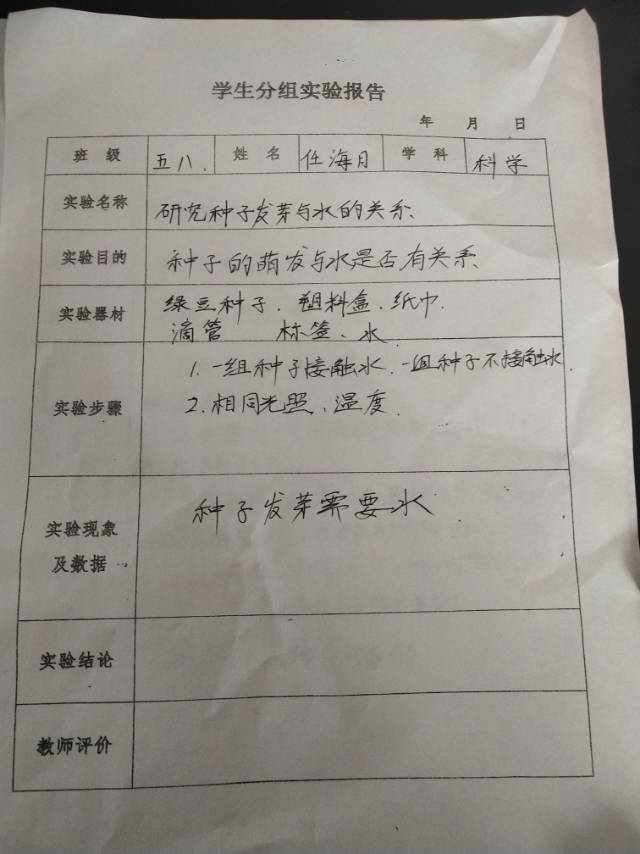 学生分组实验报告
年 月 日
班 级 五八. 姓 名 任海月 学 科 科学
实验名称 研究种子发芽与水的关系.
实验目的 种子的萌发与水是否有关系.
实验器材 绿豆种子. 塑料盒. 纸巾.
滴管 标签、水
实验步骤 1. 一组种子接触水. 一组种子不接触水.
2. 相同光照、温度.
实验现象及数据 种子发芽需要水
实验结论
教师评价